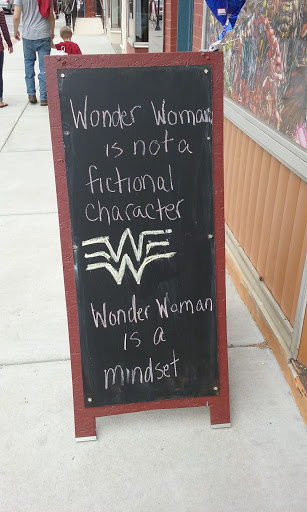 Wonder Woman
is not a
fictional
character
Wonder Woman
is a
mindset